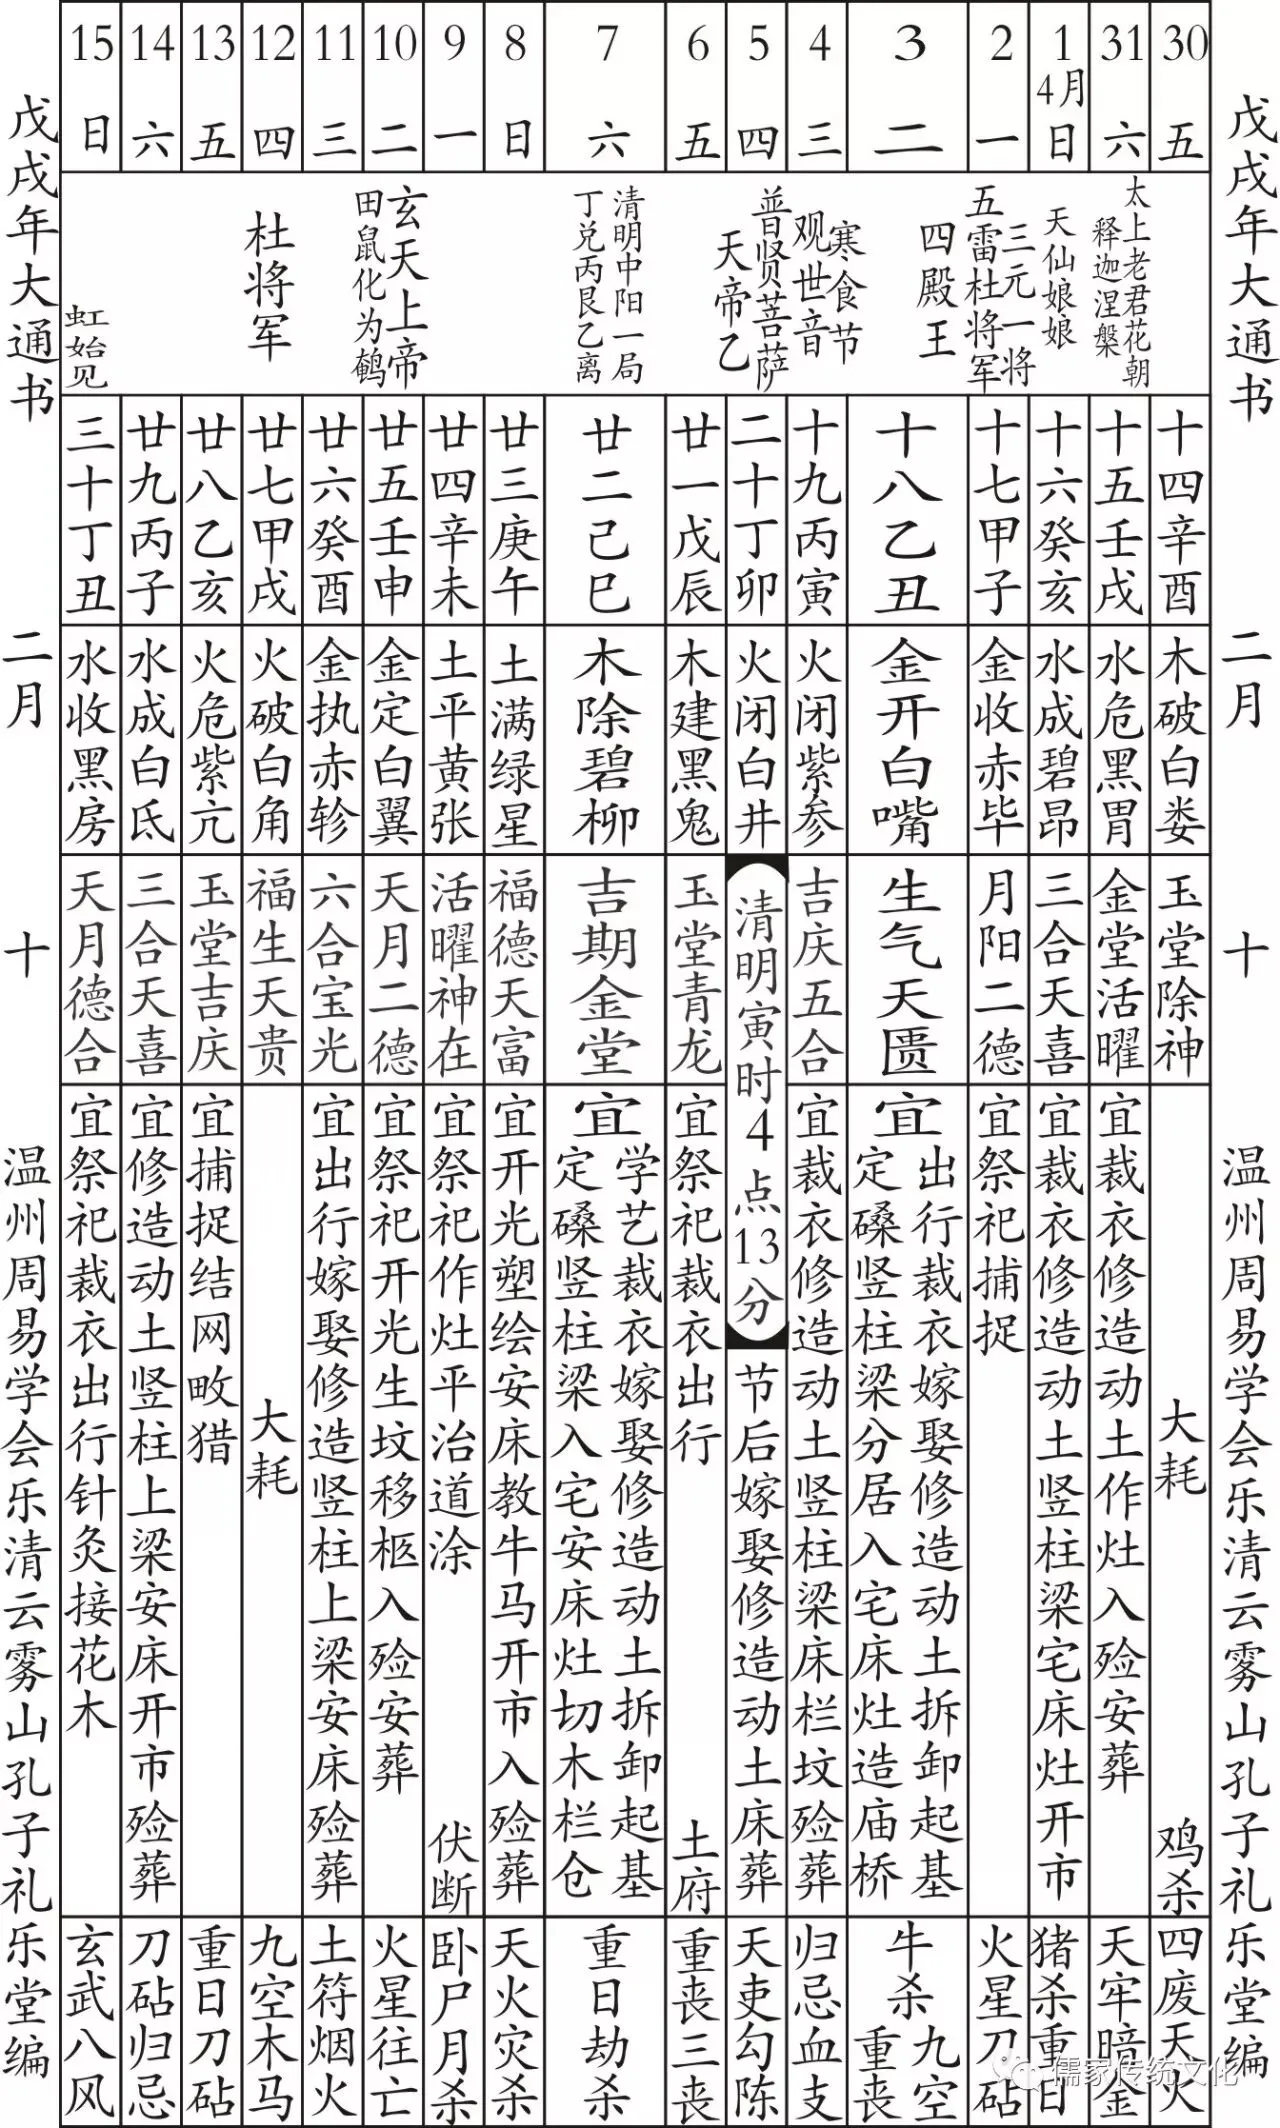 戊戌年大通书 二月 十 温州周易学会乐清云雾山孔子礼乐堂编
30 五
太上老君花朝
释迦涅槃
十四辛酉
木破白娄
玉堂除神
大耗 鸡杀
四废天火
31 六
十五壬戌
水危黑胃
金堂活曜
宜裁衣修造动土作灶入殓安葬
天牢暗金
1 4月 日
天仙娘娘
十六癸亥
水成碧昂
三合天喜
宜裁衣修造动土竖柱梁宅床灶开市
猪杀重日
2 一
三元一将
五雷杜将军
十七甲子
金收赤毕
月阳二德
宜祭祀捕捉
火星刀砧
3 二
四殿王
十八乙丑
金开白嘴
生气天匮
宜
出行裁衣嫁娶修造动土拆卸起基
定磉竖柱梁分居入宅床灶造庙桥
牛杀
九空
重丧
4 三
寒食节
观世音
十九丙寅
火闭紫参
吉庆五合
宜裁衣修造动土竖柱梁床栏坟殓葬
归忌血支
5 四
普贤菩萨
天帝乙
二十丁卯
火闭白井
清明寅时4点13分
节后嫁娶修造动土床葬
天吏勾陈
6 五
廿一戊辰
木建黑鬼
玉堂青龙
宜祭祀裁衣出行 土府
重丧三丧
7 六
清明中阳一局
丁兑丙艮乙离
廿二己巳
木除碧柳
吉期金堂
宜
学艺裁衣嫁娶修造动土拆卸起基
定磉竖柱梁入宅安床灶切木栏仓
重日劫杀
8 日
廿三庚午
土满绿星
福德天富
宜开光塑绘安床教牛马开市入殓葬
天火灾杀
9 一
廿四辛未
土平黄张
活曜神在
宜祭祀作灶平治道涂 伏断
卧尸月杀
10 二
玄天上帝
田鼠化为鹌
廿五壬申
金定白翼
天月二德
宜祭祀开光生坟移柩入殓安葬
火星往亡
11 三
廿六癸酉
金执赤轸
六合宝光
宜出行嫁娶修造竖柱上梁安床殓葬
土符烟火
12 四
杜将军
廿七甲戌
火破白角
福生天贵
大耗
九空木马
13 五
廿八乙亥
火危紫亢
玉堂吉庆
宜捕捉结网畋猎
重日刀砧
14 六
廿九丙子
水成白氐
三合天喜
宜修造动土竖柱上梁安床开市殓葬
刀砧归忌
15 日
虹始见
三十丁丑
水收黑房
天月德合
宜祭祀裁衣出行针灸接花木
玄武八风
戊戌年大通书 二月 十 温州周易学会乐清云雾山孔子礼乐堂编
儒家传统文化